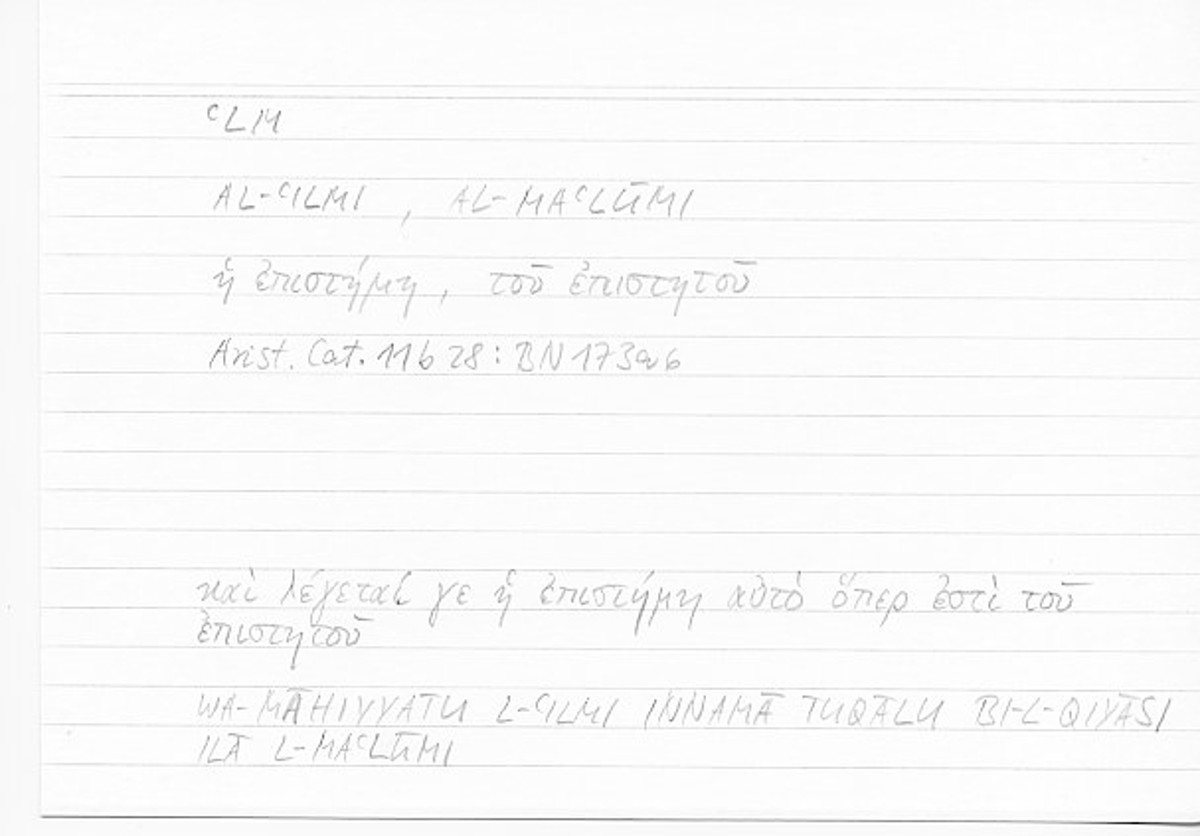 ᶜLM
AL-ᶜILMI , AL-MAᶜLŪMI
ἡ ἐπιστήμη , τοῦ ἐπιστητοῦ
Arist. Cat. 11b 28 : BN 173a6
καὶ λέγεταί γε ἡ ἐπιστήμη αὐτὸ ὅπερ ἐστὶ τοῦ
ἐπιστητοῦ
WA-MĀHIYYATU L-ᶜILMI INNAMĀ TUQĀLU BI-L-QIYĀSI
ILĀ L-MAᶜLŪMI